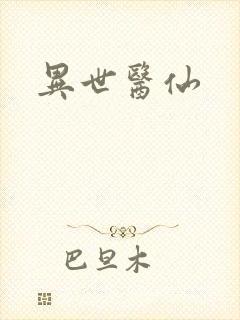 異世醫仙
巴旦木